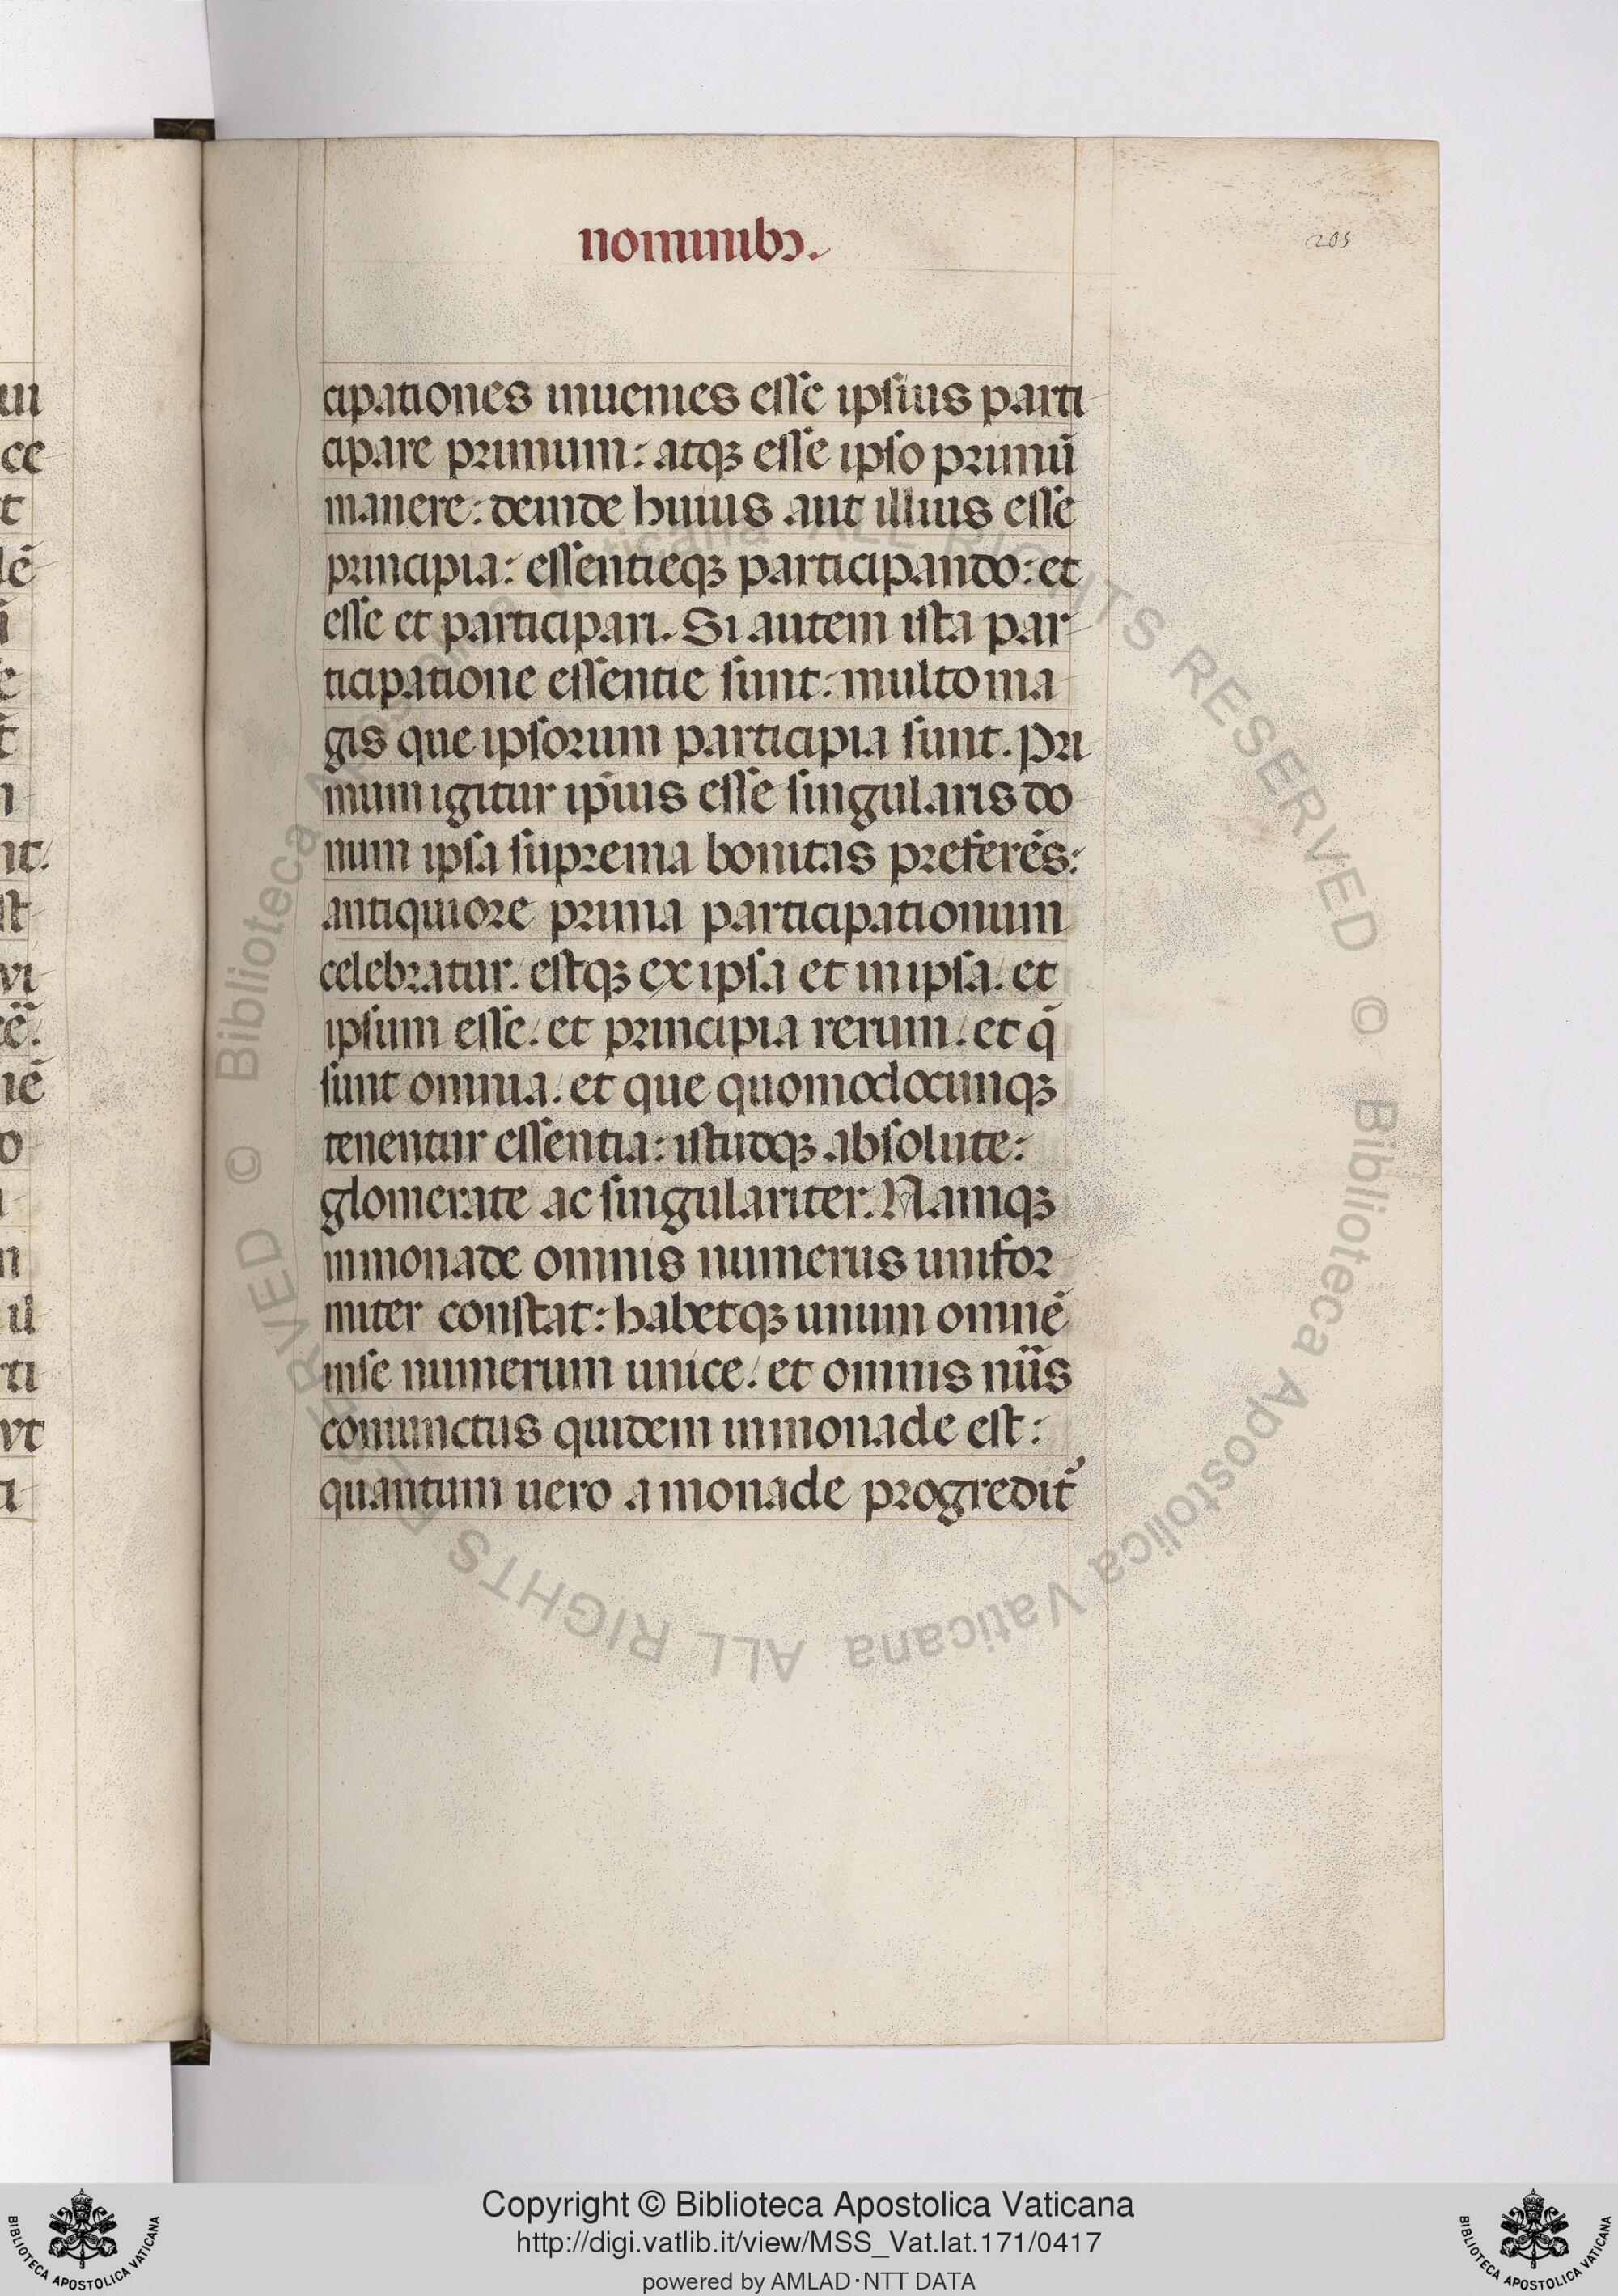 nominibꝫ.
205
cipationes inuenies esse ipsius parti
cipare primum: atqꝫ esse ipso primū
manere: deinde huius aut illius esse
principia: essentieqꝫ participando: et
esse et participari. Si autem ista par-
ticipatione essentie sunt: multo ma
gis que ipsorum participia sunt. Pri
mum igitur ip̄ius esse singularis do
num ipsa suprema bonitas preferēs:
antiquiore prima participationum
celebratur. estqꝫ ex ipsa et in ipsa. et
ipsum esse. et principia rerum. et q̄
sunt omnia. et que quomodocunqꝫ
tenentur essentia: istudqꝫ absolute:
glomerate ac singulariter. Namqꝫ
in monade omnis numerus unifor
miter constat: habetqꝫ unum omnē
in se numerum unice. et omnis nūs
coniunctus quidem in monade est:
quantum uero a monade progredit᷑
Copyright © Biblioteca Apostolica Vaticana
http://digi.vatlib.it/view/MSS_Vat.lat.171/0417
powered by AMLAD·NTT DATA
BIBLIOTECA APOSTOLICA VATICANA
BIBLIOTECA APOSTOLICA VATICANA
© Biblioteca Apostolica Vaticana ALL RIGHTS RESERVED
© Biblioteca Apostolica Vaticana ALL RIGHTS RESERVED